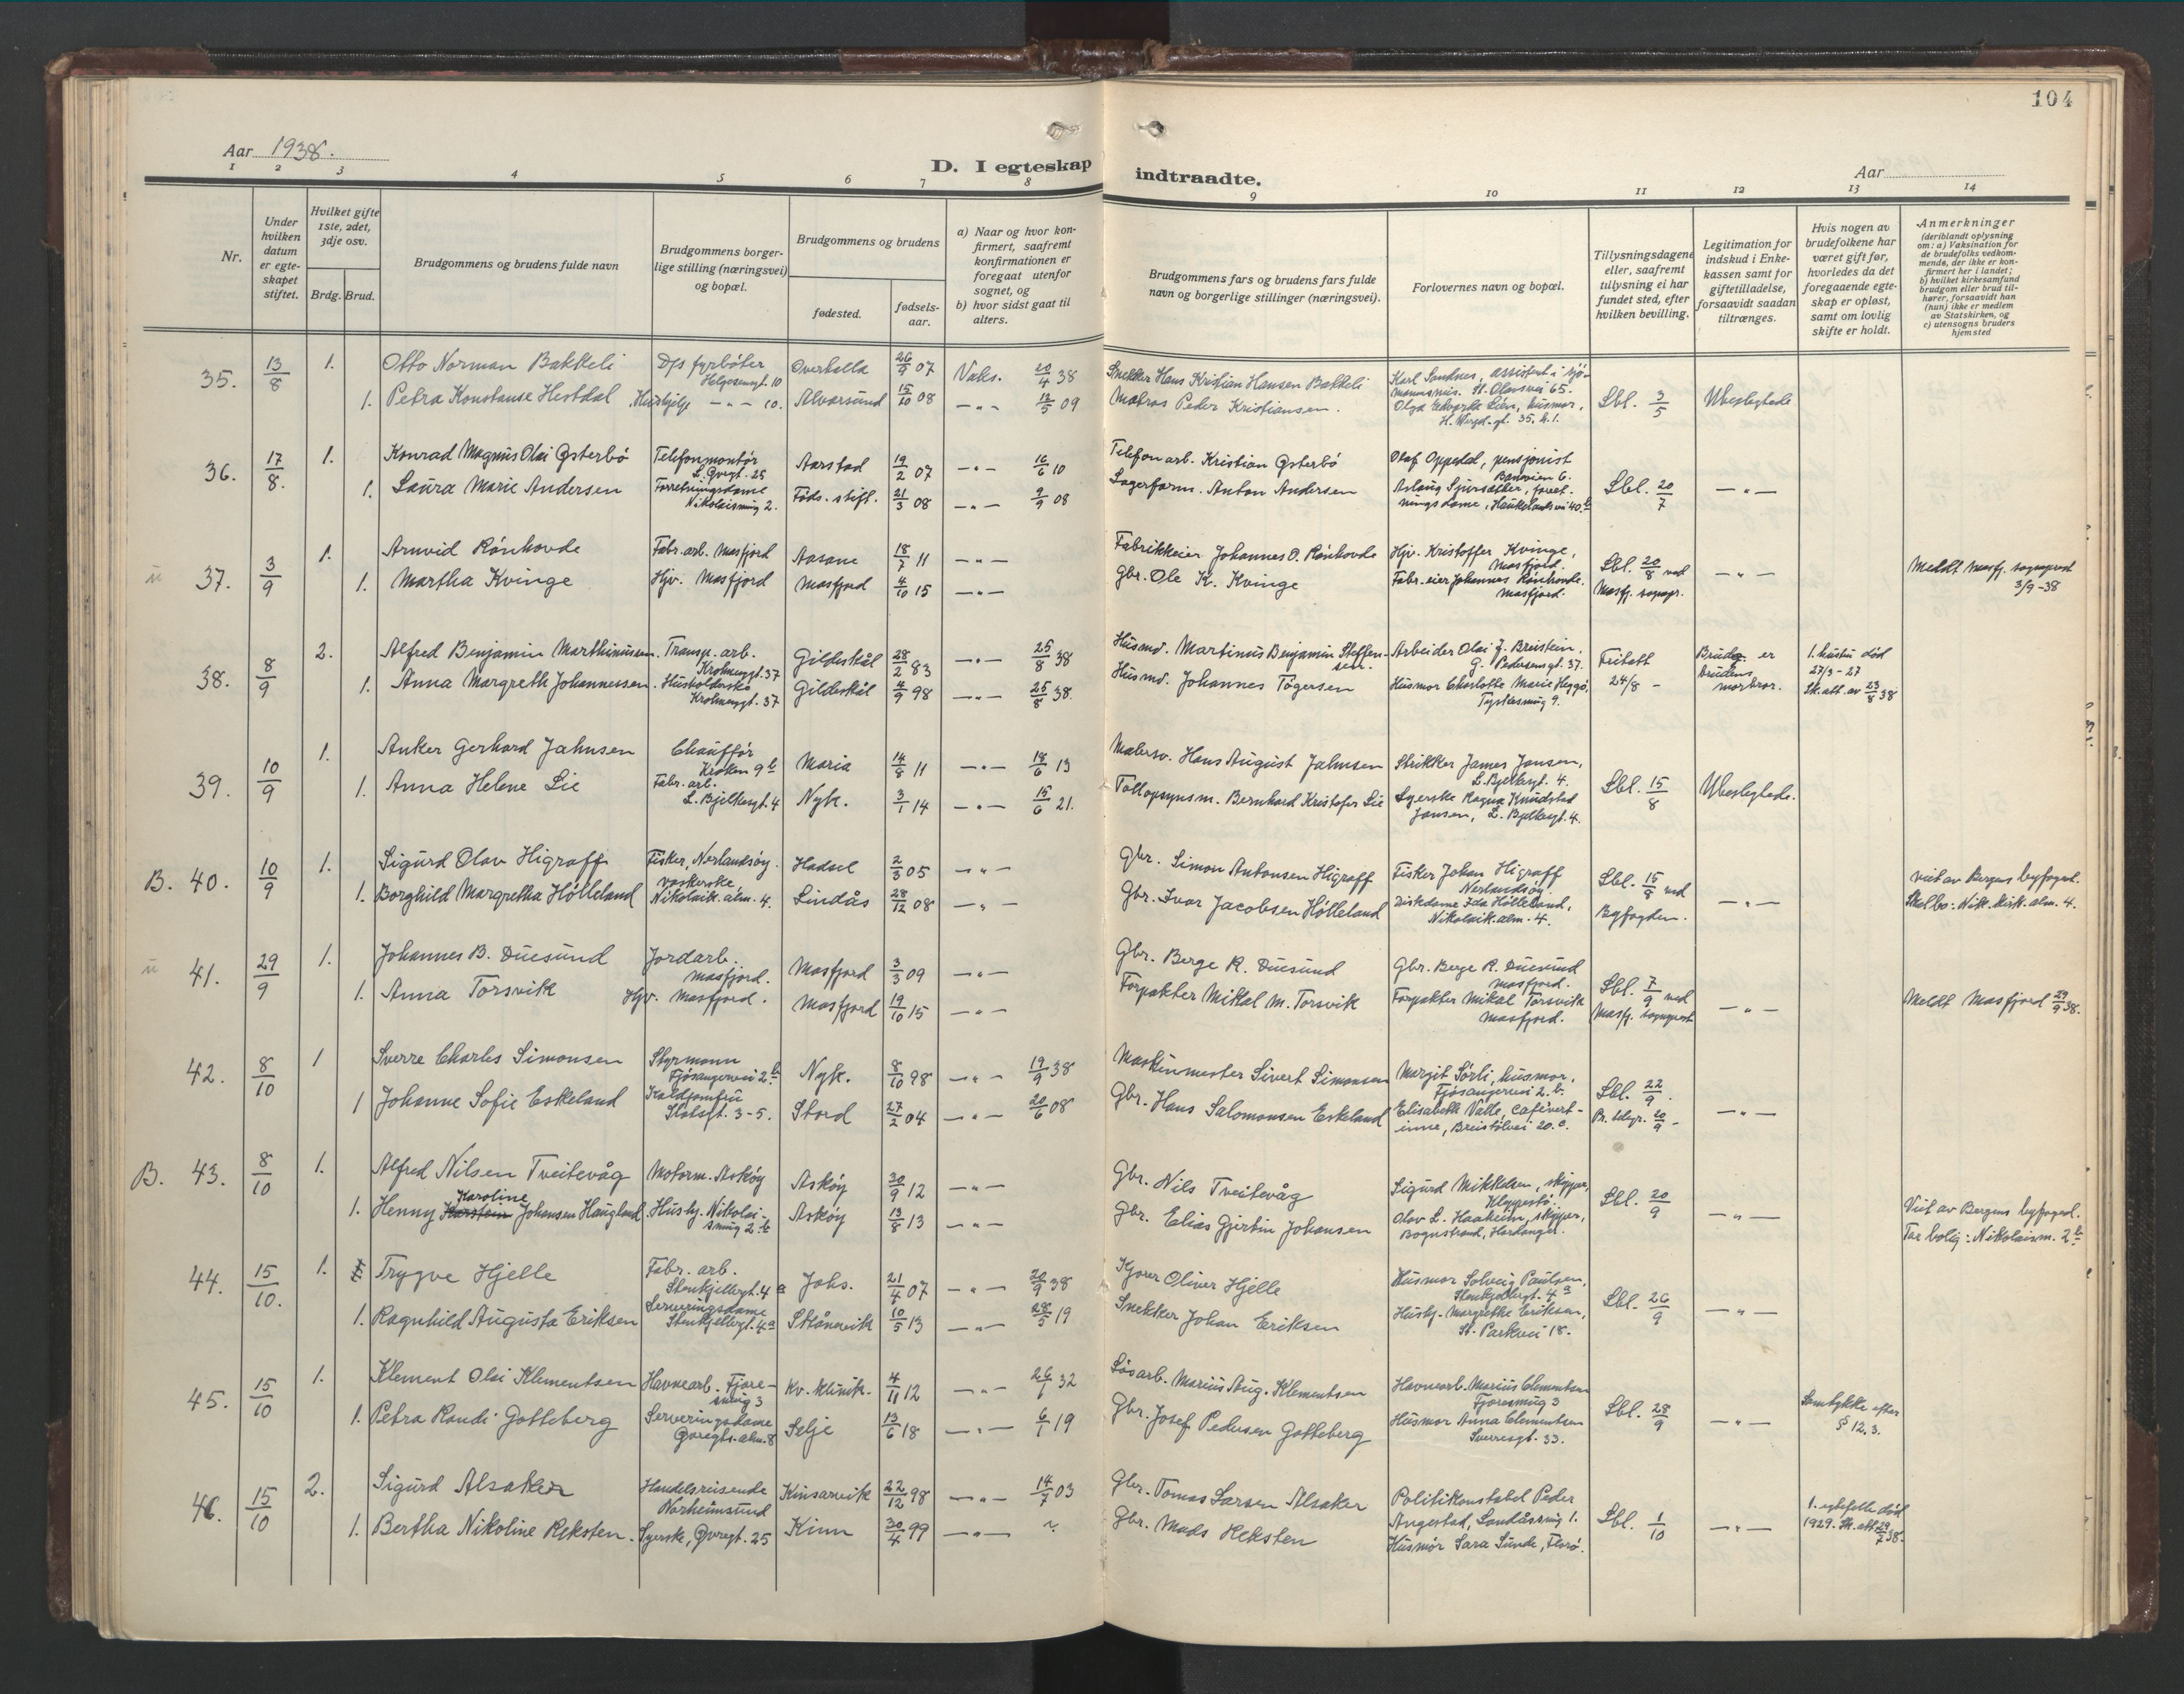 104
Aar 1938.
D. I egteskap
indtraadte.
Aar
1 2 3 4 5 6 7 8
9 10 11 12 13 14
Nr.
Under hvilken datum er egte-skapet stiftet.
Hvilket gifte 1ste, 2det, 3dje osv.
Brdg. Brud.
Brudgommens og brudens fulde navn
Brudgommens borger-lige stilling (næringsvei) og bopæl.
Brudgommens og brudens
fødested.
fødsels-aar.
a) Naar og hvor kon-firmert, saafremt konfirmationen er foregaat utenfor sognet, og
b) hvor sidst gaat til alters.
Brudgommens fars og brudens fars fulde navn og borgerlige stillinger (næringsvei).
Forlovernes navn og bopæl.
Tillysningsdagene eller, saafremt tillysning ei har fundet sted, efter hvilken bevilling.
Legitimation for indskud i Enke-kassen samt for giftetilladelse, forsaavidt saadan tiltrænges.
Hvis nogen av brudefolkene har været gift før, hvorledes da det foregaaende egte-skap er opløst, samt om lovlig skifte er holdt.
Anmerkninger
(deriblandt oplysning om: a) Vaksination for de brudefolks vedkom-mende, der ikke er kon-firmert her i landet; b) hvilket kirkesamfund brudgom eller brud til-hører, forsaavidt han (hun) ikke er medlem av Statskirken, og c) utensogns bruders hjemsted
35. 13/8 1. Otto Norman Bakkeli D/s fyrbøter Helgesensgt. 10 Overhalla 26/9 07 Vaks. 20/4 38 Snekker Hans Kristian Hansen Bakkeli Karl Sandnes, assistent i sjø-mannsmis. St. Olavsvei 65.
1. Petra Konstanse Hestdal Hushjelp —"— 10. Alversund 15/10 08 —"— 12/5 09 Matros Peder Kristiansen. Olga Lién, husmor, H. Wergel.gt. 35. h.1. Lbl. 3/5 Ubeslegtede
36. 17/8. 1. Konrad Magnus Olai Østerbø Telefonmontør L. Øvregt. 25 Aarstad 19/2 07 —"— 16/6 10 Telefonarb. Kristian Østerbø Olaf Oppedal, pensjonist
1. Laura Marie Andersen Forretningsdame Nikolaismug 2. Føds. stift. 21/3 08 —"— 9/9 08 Lagerform. Anton Andersen Aslaug Sjursæther, forret-ningsdame, Haukelandsvei 40.b Lbl. 20/7 —"—
37. 3/9 1. Arnvid Rønhovde Fabr. arb. Masfjord Aasane 18/7 11 —"— Fabrikkeier Johannes O. Rønhovde Hjv. Kristoffer Kvinge, Masfjord.
1. Martha Kvinge Hjv. Masfjord Masfjord 4/10 15 —"— Gbr. Ole K. Kvinge Fabr.eier Johannes Rønhovde. Masfjord. Lbl. 20/8 ved Masfj. sognepr. —"— Meldt Masfj. sogneprest 3/9-38
38. 8/9 2. Alfred Benjamin Marthinussen. Transp. arb. Krohnengt. 37 Gildeskål 28/2 83 —"— 25/8 38 Husmd. Martinus Benjamin Steffen-sen. Arbeider Olai J. Breistein, G. Pedersensgt. 37.
1. Anna Margreth Johannessen. Husholderske Krohnengt. 37 Gildeskål 4/9 98 —"— 25/8 38. Husmd. Johannes Tøgersen Husmor Charlotte Marie Heggø, Tyskesmug 9. Fritatt 24/8 - Brudg. er brudens morbror. 1. hustru død 27/3-27 Sk.att. av 23/8 38
39. 10/9 1. Anker Gerhard Jahnsen Chauffør Kroken 9 b Maria 14/8 11 —"— 18/6 13 Malersv. Hans August Jahnsen Strikker James Jansen, L. Bjelkesgt. 4.
1. Anna Helene Lie Fabr. arb. L. Bjelkesgt. 4 Nyk. 3/1 14 —"— 15/6 21. Tollopsynsm. Bernhard Kristofer Lie Syerske Ragna Knudstad Jansen, L. Bjelkesgt. 4. Lbl. 15/8 Ubeslegtede.
B. 40. 10/9 1. Sigurd Olav Higraff Fisker, Nerlandsøy. Hadsel 2/3 05 —"— Gbr. Simon Antonsen Higraff Fisker Johan Higraff Nerlandsøy.
1. Borghild Margretha Hølleland vaskerske, Nikolaik.alm. 4. Lindås 28/12 08 —"— Gbr. Ivar Jacobsen Hølleland Diskdame Ida Hølleland, Nikolaik.alm. 4. Lbl. 15/8 ved Byfogden. —"— viet av Bergens byfogd. Skal bo: Nik. kirk. alm. 4.
41. 29/9 1. Johannes B. Duesund Jordarb. Masfjord. Masfjord 3/3 09 —"— Gbr. Berge R. Duesund Gbr. Berge R. Duesund Masfjord.
1. Anna Torsvik Hjv. Masfjord. Masfjord 19/10 15 —"— Forpakter Mikal M. Torsvik Forpakter Mikal Torsvik Masfjord. Lbl. 7/9 ved Masfj. sogneprest —"— Meldt Masfjord 29/9 38.
42. 8/10 1 Sverre Charles Simonsen Styrmann Fjøsangervei 2 b Nyk. 8/10 98 —"— 19/9 38 Maskinmester Sivert Simonsen Margit Sørli, husmor. Fjøsangervei 2. b.
1 Johanne Sofie Eskeland Koldjomfru 3-5. Stord 27/2 04 —"— 20/6 08 Gbr. Hans Salomonsen Eskeland Elisabeth Valle, cafévert-inne, Breistølvei 20. c. Lbl. 22/9. Pr. telegr. 20/9 - —"—
B. 43. 8/10 1. Alfred Nilsen Tveitevåg Motorm. Askøy Askøy 30/9 12 —"— Gbr. Nils Tveitevåg Sigurd Mikkelsen, skipper, Kleppestø.
1. Henny Karoline Johansen Haugland. Hushj. Nikolai-smug 2 b Askøy 13/8 13 —"— Gbr. Elias Gjertin Johansen Olav L. Haaheim, skipper, Hardanger. Lbl. 20/9 —"— Viet av Bergens byfogd. Tar bolig: Nikolaism. 2 b
44. 15/10. 1. Trygve Hjelle Fabr. arb. Stenkjellergt. 4 a Johs. 21/4 07 —"— 20/9 38 Kjører Oliver Hjelle Husmor Solveig Paulsen, Stenkjellergt. 4 a
1. Ragnhild Augusta Eriksen Serveringsdame Stenkjellergt. 4 a Skånevik 10/5 13 —"— 28/5 19 Snekker Johan Eriksen Hushj. Margrethe Eriksen, St. Parkvei 18. Lbl. 26/9 —"—
45. 15/10 1. Klement Olai Klementsen Havnearb. Fjøre-smug 3 Kv. klinik. 4/11 12 —"— 26/1 32 Løsarb. Marius Aug. Klementsen Havnearb. Marius Clementsen Fjøresmug 3
1. Petra Randi Gotteberg Serveringsdame Øvregts. alm. 8 Selje 13/6 18 —"— 6/1 19 Gbr. Josef Pedersen Gotteberg Husmor Anna Clementsen Sverresgt. 33. Lbl. 28/9 —"— Samtykke efter § 12. 3.
46. 15/10 2. Sigurd Alsaker Handelsreisende Norheimsund Kinsarvik 22/12 98 —"— 14/7 03 Gbr. Tomas Larsen Alsaker Politikonstabel Peder Angestad, Landåssving 1.
1. Bertha Nikoline Reksten. Syerske, Øvregt. 25 Kinn 30/4 99 —"— Gbr. Mads Reksten Husmor Sara Sunde, Florø. Lbl. 1/10 —"— 1. egtefelle død 1929. Sk. att 29/7 38.